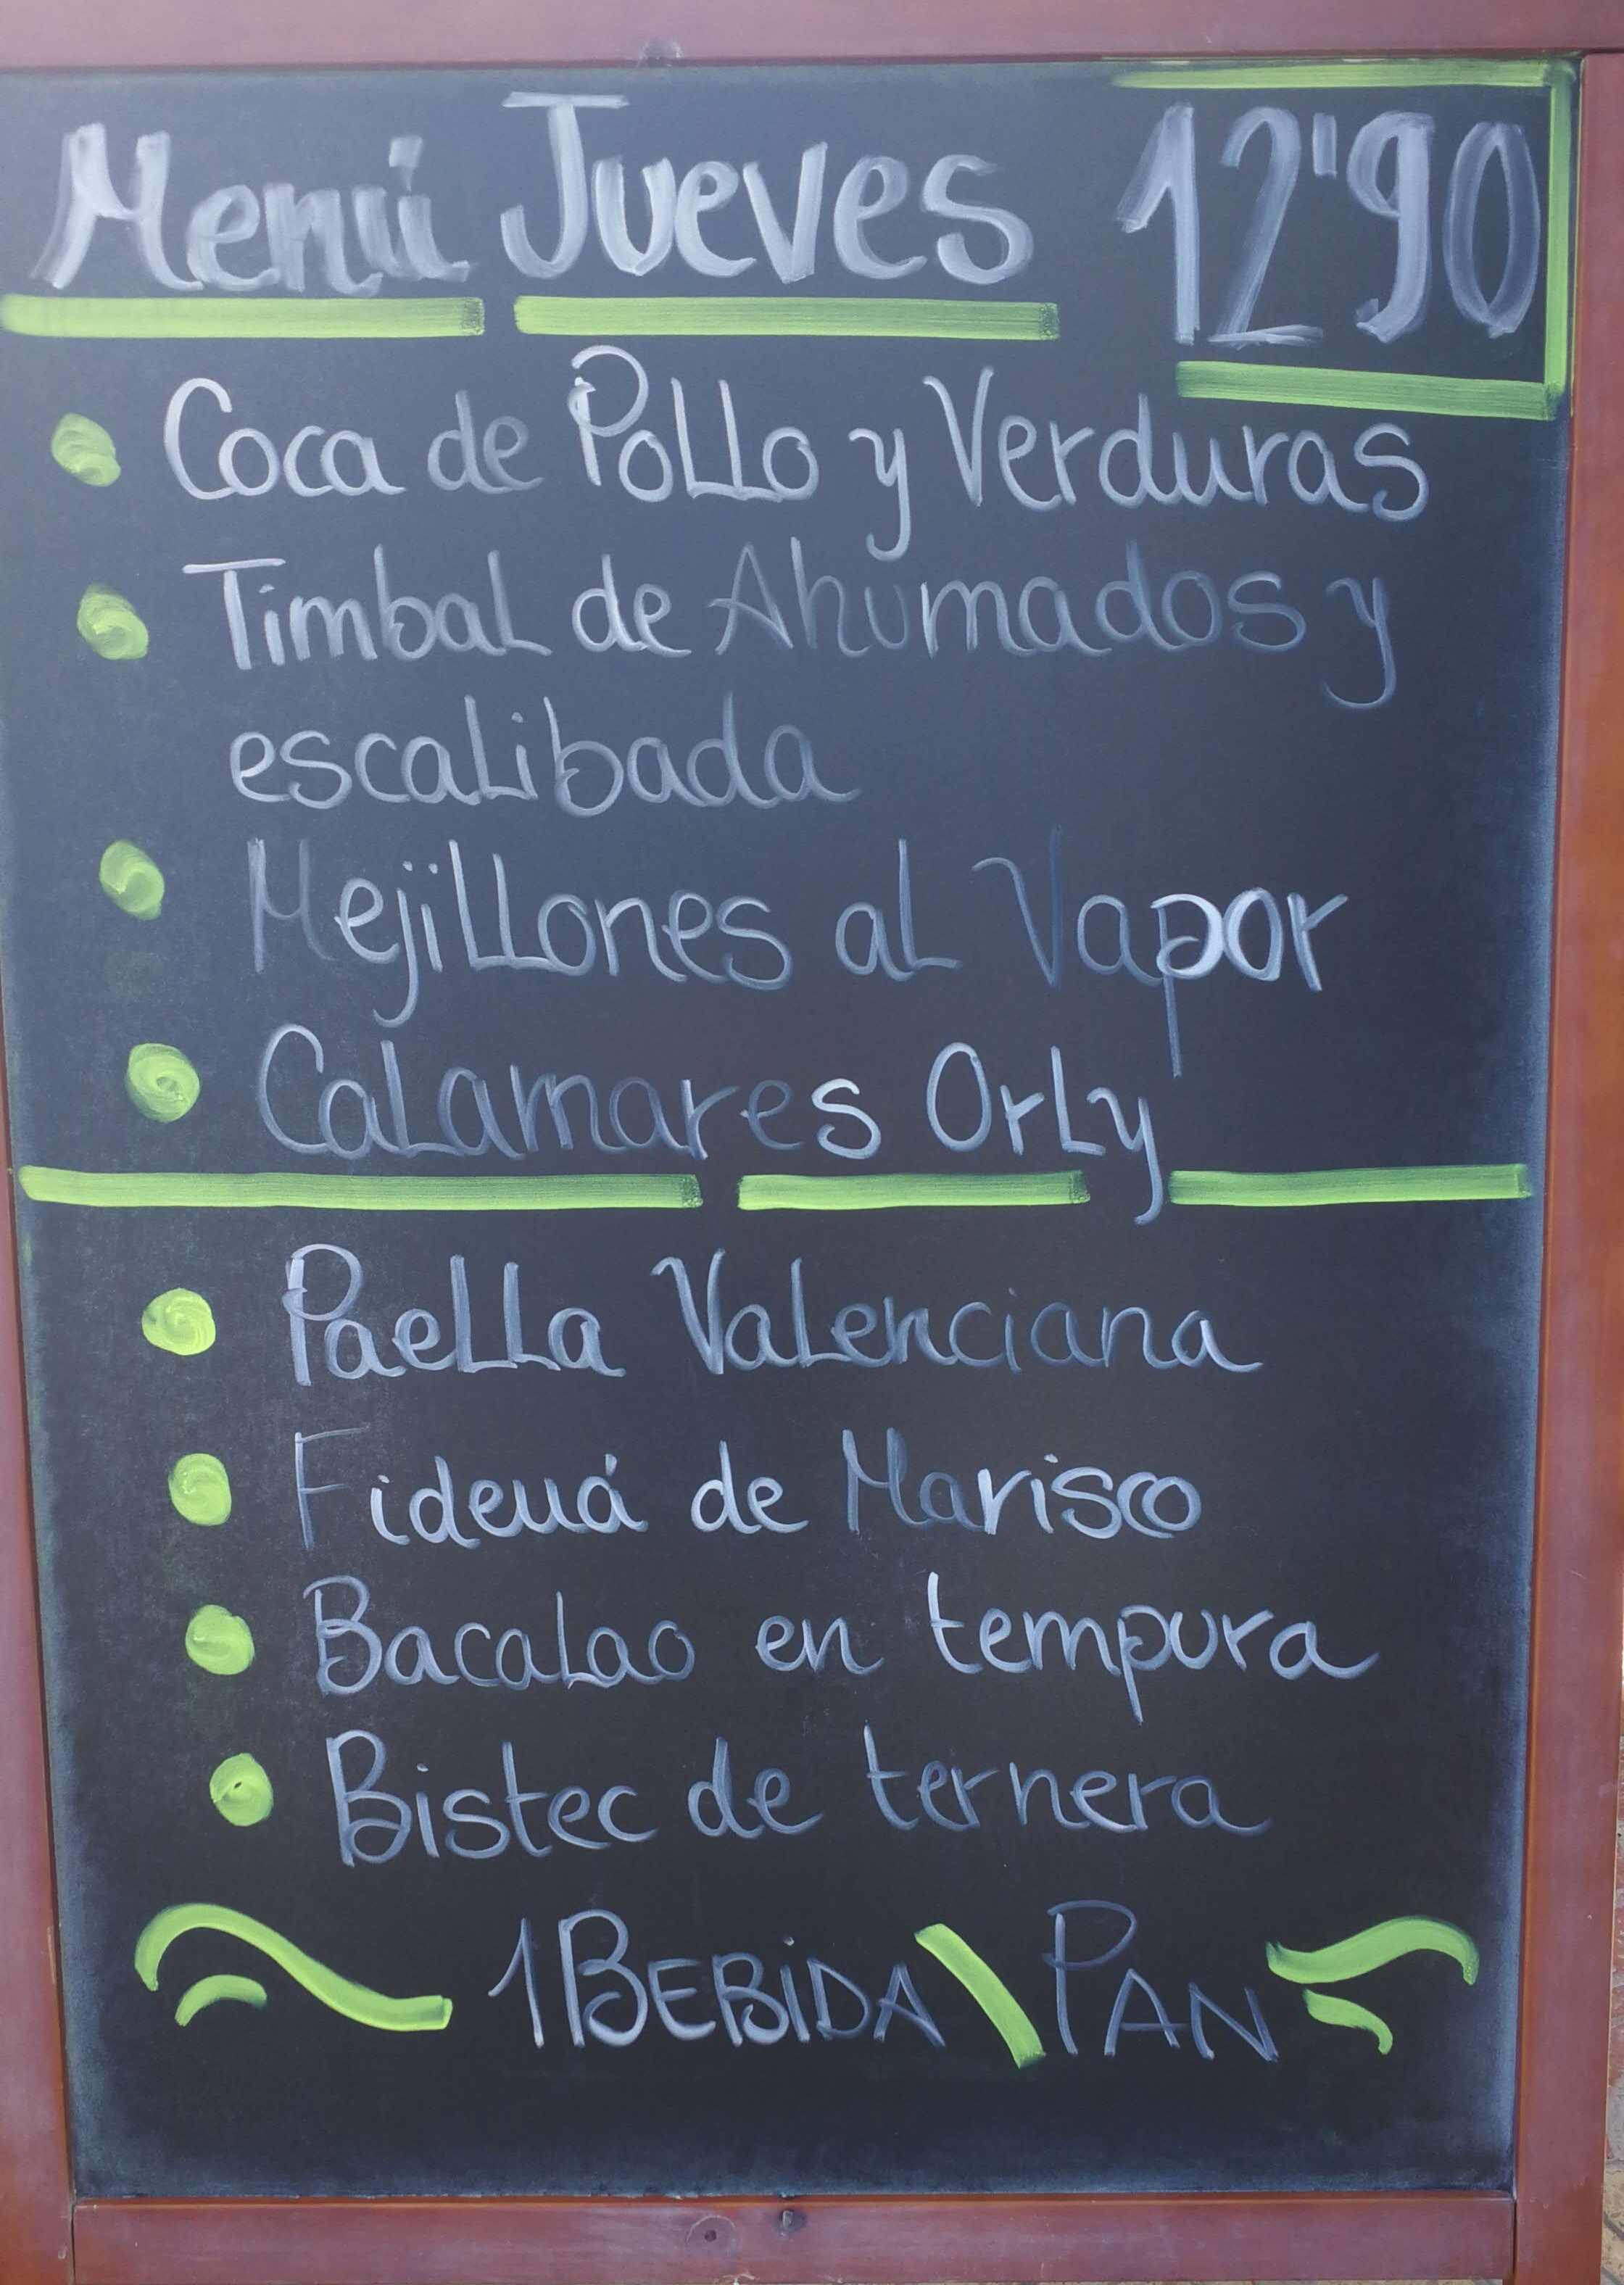 Menú Jueves 12'90
Coca de Pollo y Verduras
Timbal de Ahumados y
escalibada
Mejillones al Vapor
Calamares Orly
Paella Valenciana
Fideuá de Marisco
Bacalao en tempura
Bistec de ternera
1 BEBIDA \ PAN